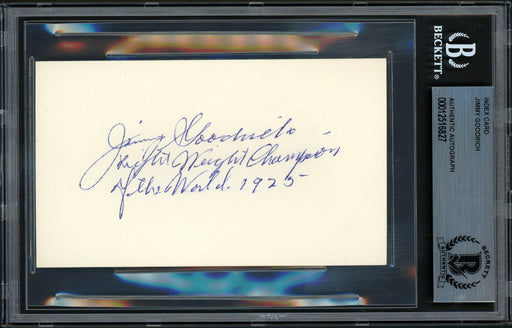 Jimmy Goodrich
Light Weight Champion
of the World. 1925
BECKETT®
INDEX CARD
JIMMY GOODRICH
AUTHENTIC AUTOGRAPH
00012516827
BECKETT
AUTHENTIC